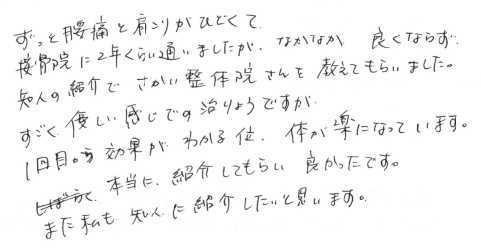 ずっと腰痛と肩こりがひどくて、
接骨院に2年くらい通いましたが、なかなか 良くならず、
知人の紹介で さかい整体院さんを 教えてもらいました。
すごく 優しい感じでの治りょうですが、
1回目から効果が わかる位、体が楽になっています。
本当に、紹介してもらい 良かったです。
また私も 知人に紹介したいと思います。